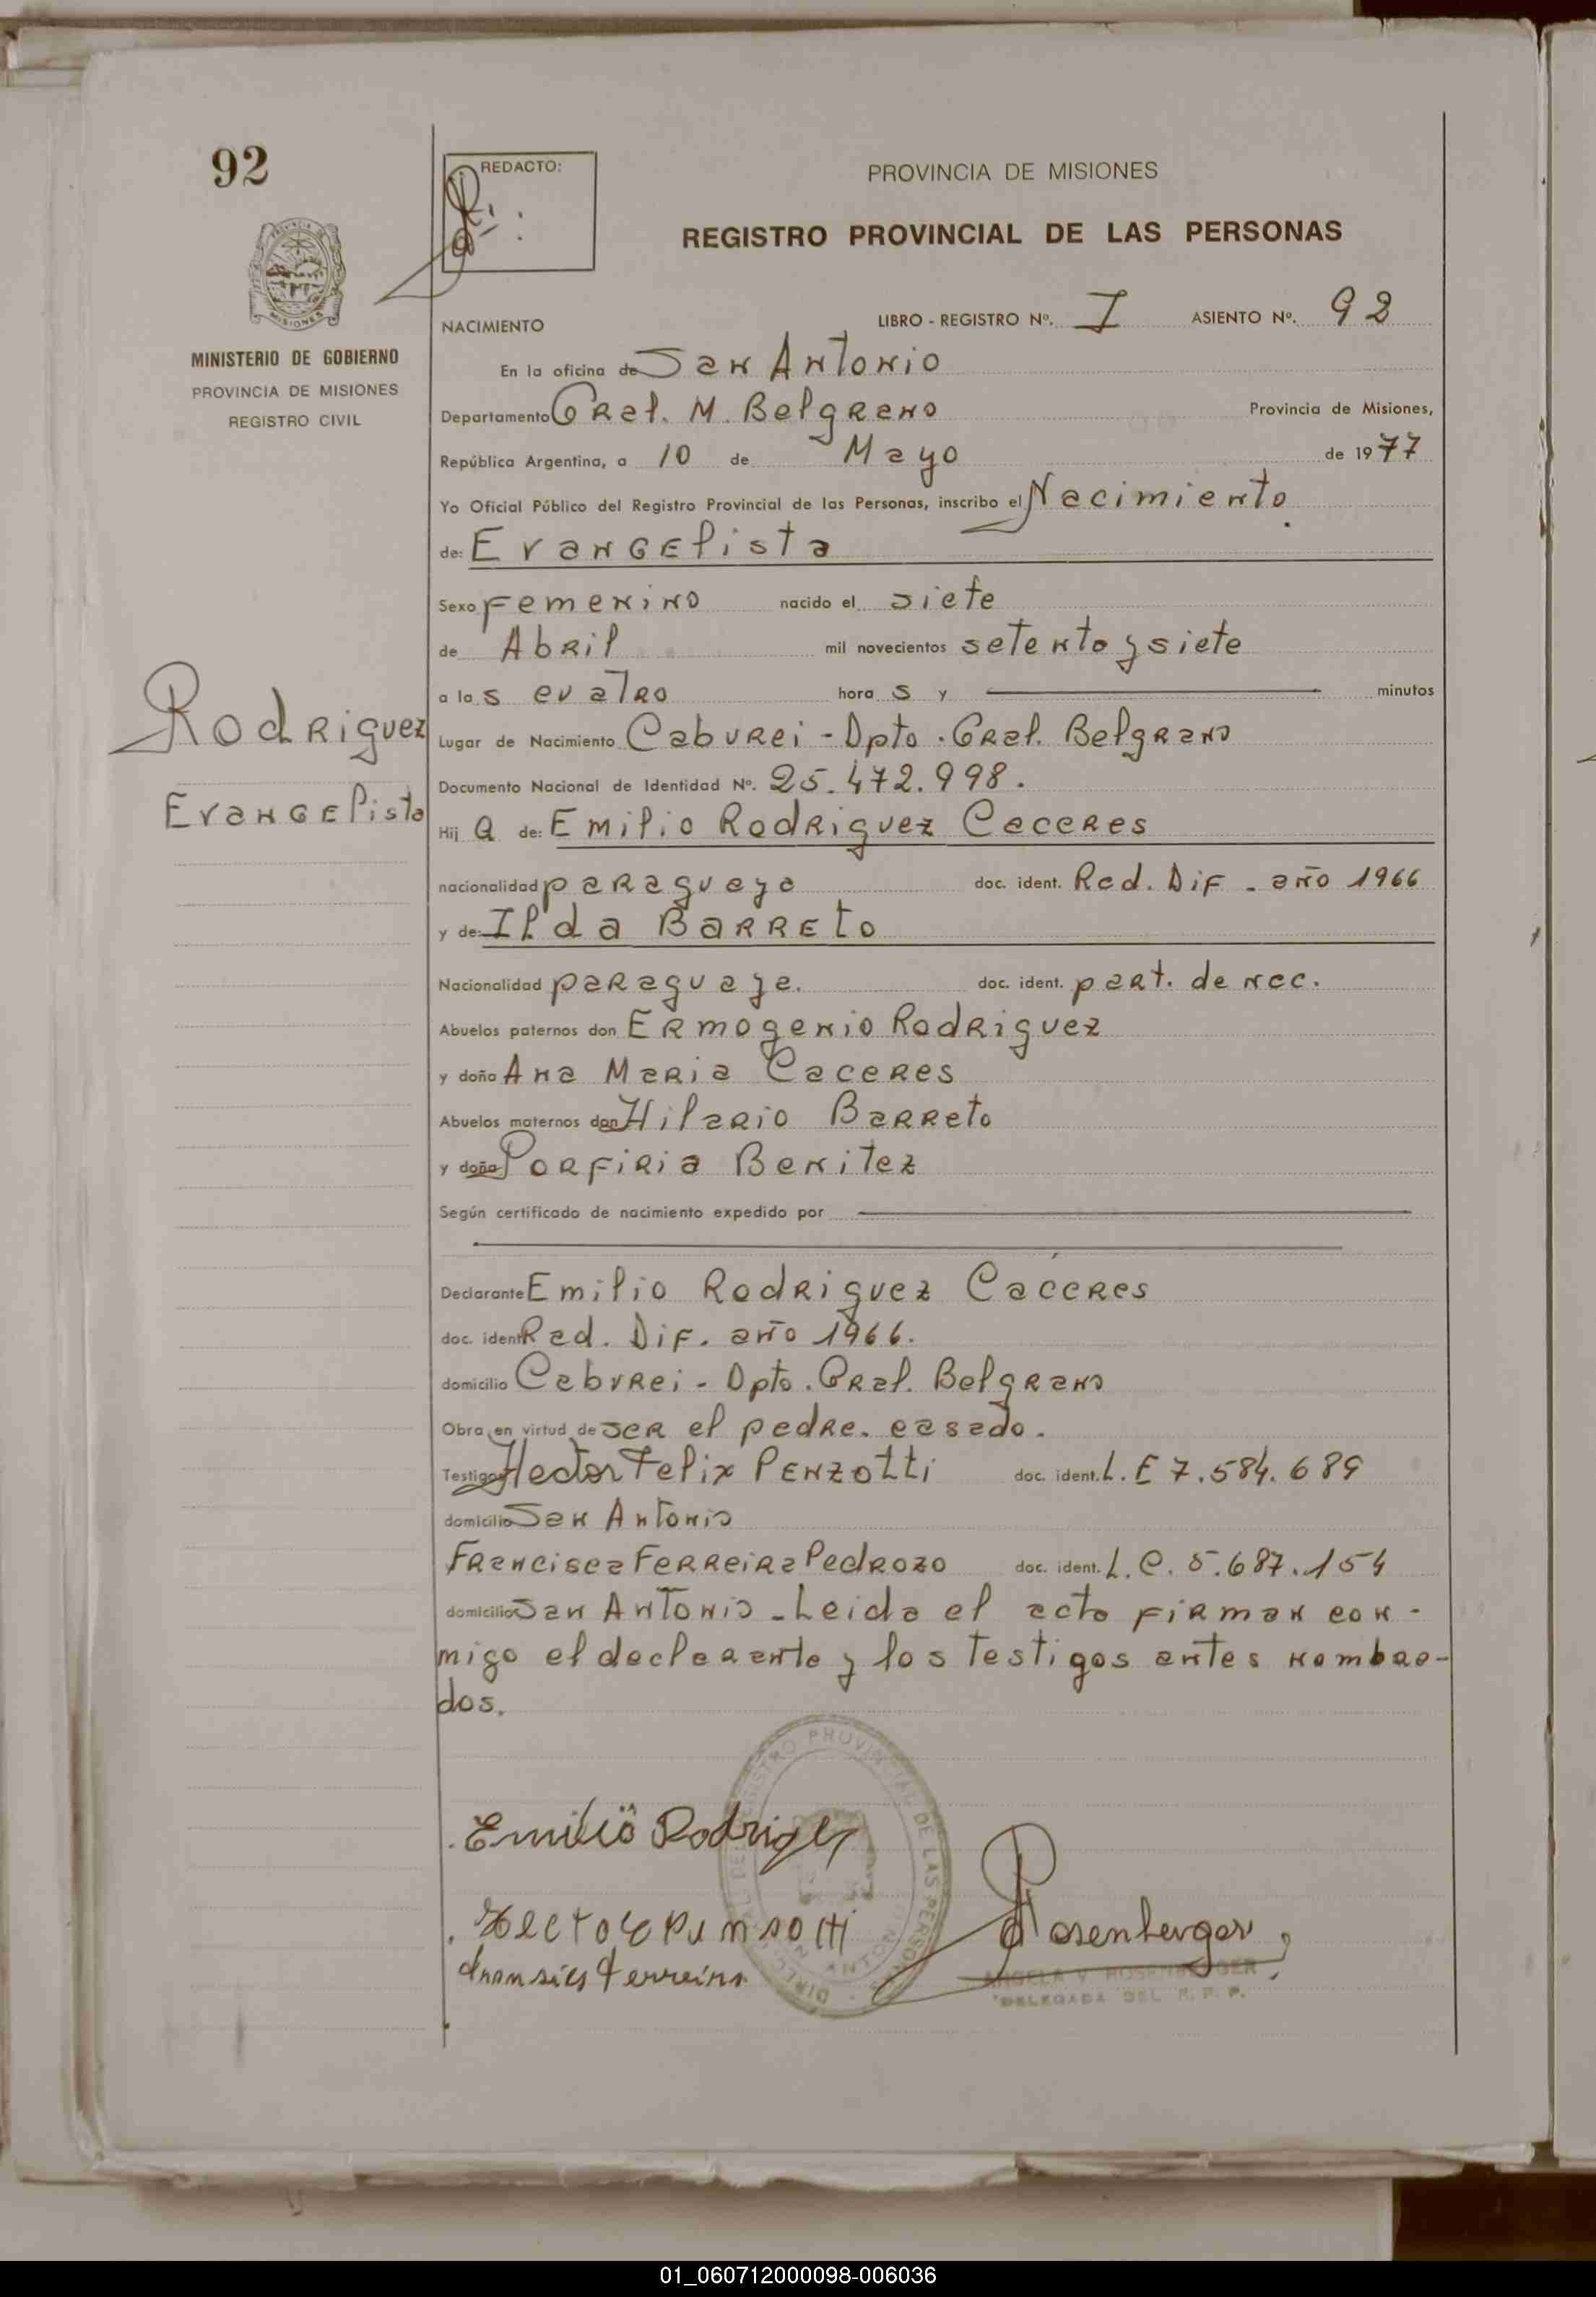 92
REDACTO:
PROVINCIA DE MISIONES
REGISTRO PROVINCIAL DE LAS PERSONAS
MISIONES
MINISTERIO DE GOBIERNO
PROVINCIA DE MISIONES
REGISTRO CIVIL
NACIMIENTO LIBRO - REGISTRO Nº. I ASIENTO Nº. 92
En la oficina de San Antonio
Departamento Gral. M. Belgrano Provincia de Misiones,
República Argentina, a 10 de Mayo de 1977
Yo Oficial Público del Registro Provincial de las Personas, inscribo el Nacimiento
de: Evangelista
Sexo Femenino nacido el siete
de Abril mil novecientos setenta y siete
a las cuatro horas y minutos
Rodriguez
Evangelista
Lugar de Nacimiento Caburei - Dpto. Gral. Belgrano
Documento Nacional de Identidad Nº. 25.472.998.
Hija de: Emilio Rodriguez Caceres
nacionalidad paraguaya doc. ident. Rad. Dif - año 1966
y de: Ilda Barreto
Nacionalidad paraguaya. doc. ident. part. de nac.
Abuelos paternos don Ermogenio Rodriguez
y doña Ana Maria Caceres
Abuelos maternos don Hilario Barreto
y doña Porfiria Benitez
Según certificado de nacimiento expedido por
Declarante Emilio Rodriguez Cáceres
doc. ident. Rad. Dif. año 1966.
domicilio Caburei - Dpto. Gral. Belgrano
Obra en virtud de ser el padre. casado.
Testigos Hector Felix Penzotti doc. ident. L. E 7.584.689
domicilio San Antonio
Francisca Ferreira Pedrozo doc. ident. L. C. 5.687.154
domicilio San Antonio - Leida el acto firman con-
migo el declarante y los testigos antes nombra-
dos.
REGISTRO PROVINCIAL DE LAS PERSONAS
Emilio Rodrigez
Rosenberger
Ferreira
ANGELA V. ROSENBERGER
DELEGADA DEL R. P. P.
01_060712000098-006036